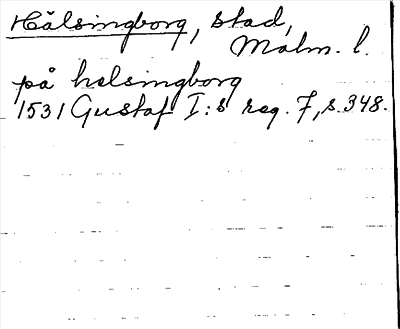 Hälsingborg, stad,
Malm. l.
på helsingborg
1531 Gustaf I:s reg. 7, s. 348.